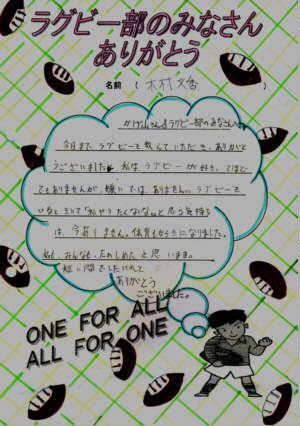 ラグビー部のみなさん
ありがとう
名前 ( 木村 文香 )
かげ山さん、ラグビー部のみなさんへ
今日まで、ラグビーを教えていただき、ありがと
うございました。私は、ラグビーが好き、ではと
でもありませんが、嫌いでは、ありません。ラグビーを
いると、きいて「もうやりたくないな」と思う気持ち
は、今ありません。体育も好きになりました。
私は、みんなも、たのしめたと思います。
短い間でしたけれど
ありがとう
ございました。
ONE FOR ALL
ALL FOR ONE